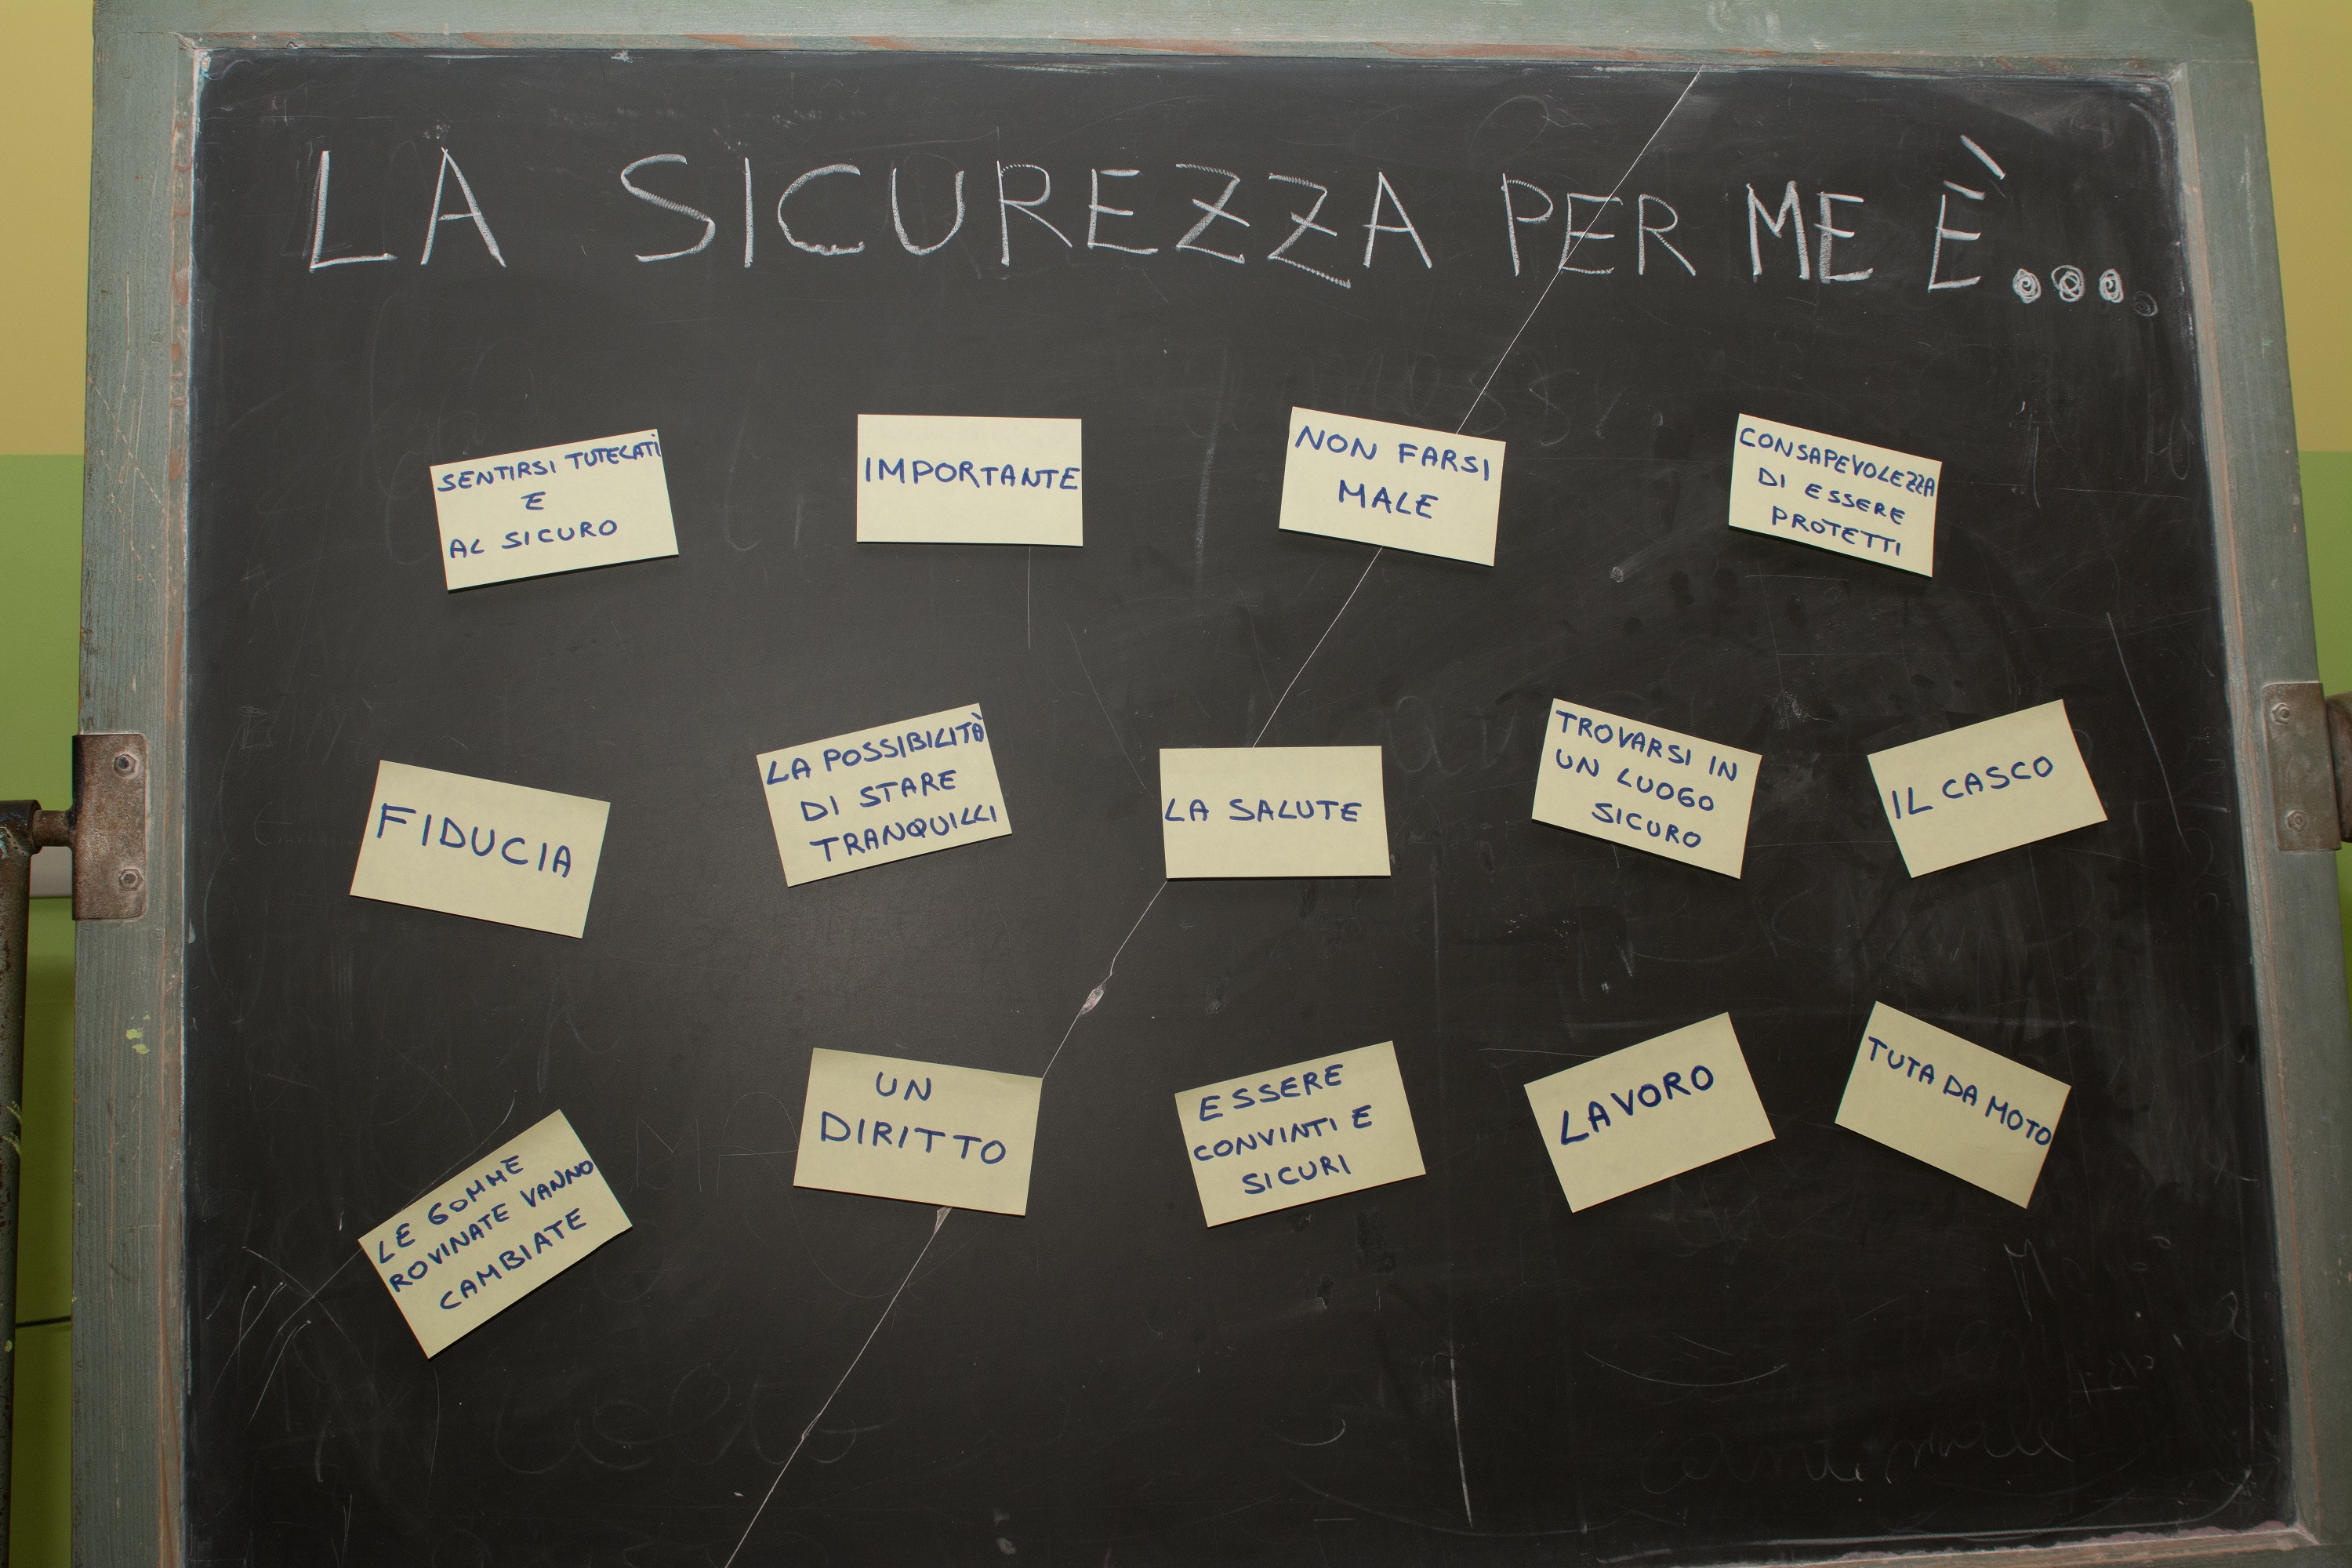 LA SICUREZZA PER ME È...
SENTIRSI TUTELATI
E
AL SICURO
IMPORTANTE
NON FARSI
MALE
CONSAPEVOLEZZA
DI ESSERE
PROTETTI
FIDUCIA
LA POSSIBILITÀ
DI STARE
TRANQUILLI
LA SALUTE
TROVARSI IN
UN LUOGO
SICURO
IL CASCO
LE GOMME
ROVINATE VANNO
CAMBIATE
UN
DIRITTO
ESSERE
CONVINTI E
SICURI
LAVORO
TUTA DA MOTO